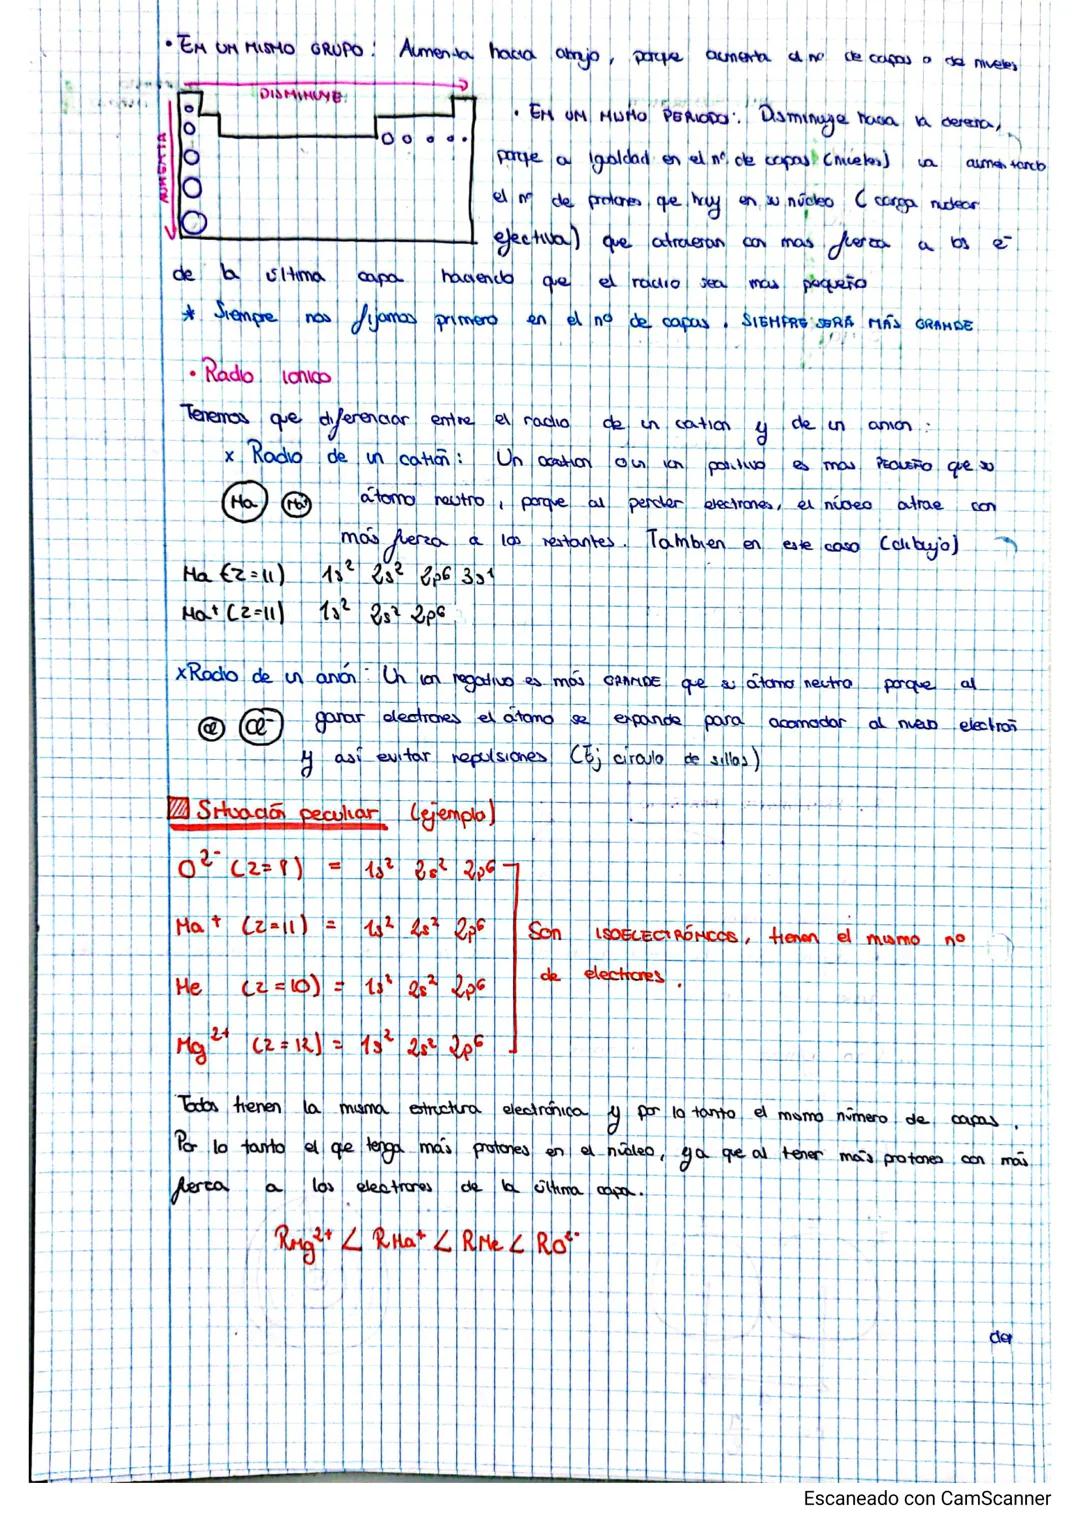 • EN UN MISMO GRUPO: Aumenta hacia abajo, porque aumenta el nº de capas o de niveles
DISMINUYE
AUMENTA
• EN UN MISMO PERIODO: Disminuye hacia la derecha,
porque a igualdad en el nº de capas (niveles) va aumentando
el nº de protones que hay en su núcleo (carga nuclear
efectiva) que atraeran con mas fuerza a los e-
de la última capa haciendo que el radio sea mas pequeño
* Siempre nos fijamos primero en el nº de capas. SIEMPRE SERÁ MÁS GRANDE
• Radio ionico
Tenemos que diferenciar entre el radio de un cation y de un anion:
x Radio de un catión: Un cation o un ion positivo es mas PEQUEÑO que su
Na Na+ átomo neutro, porque al perder electrones, el núcleo atrae con
más fuerza a los restantes. Tambien en este caso (dibujo)
Na (Z=11) 1s² 2s² 2p6 3s1
Na+ (Z=11) 1s² 2s² 2p6
x Radio de un anión: Un ion negativo es más GRANDE que su átomo neutro porque al
Cl Cl- ganar electrones el átomo se expande para acomodar al nuevo electrón
y así evitar repulsiones (Ej círculo de sillas)
Situación peculiar (ejemplo)
O2- (Z=8) = 1s² 2s² 2p6
Na+ (Z=11) = 1s² 2s² 2p6 Son ISOELECTRÓNICOS, tienen el mismo nº
de electrones.
Ne (Z=10) = 1s² 2s² 2p6
Mg2+ (Z=12) = 1s² 2s² 2p6
Todos tienen la misma estructura electrónica y por lo tanto el mismo número de capas.
Por lo tanto el que tenga más protones en el núcleo, ya que al tener más protones con más
fuerza a los electrones de la última capa.
RMg2+ < RNa+ < RNe < RO2-
der
Escaneado con CamScanner